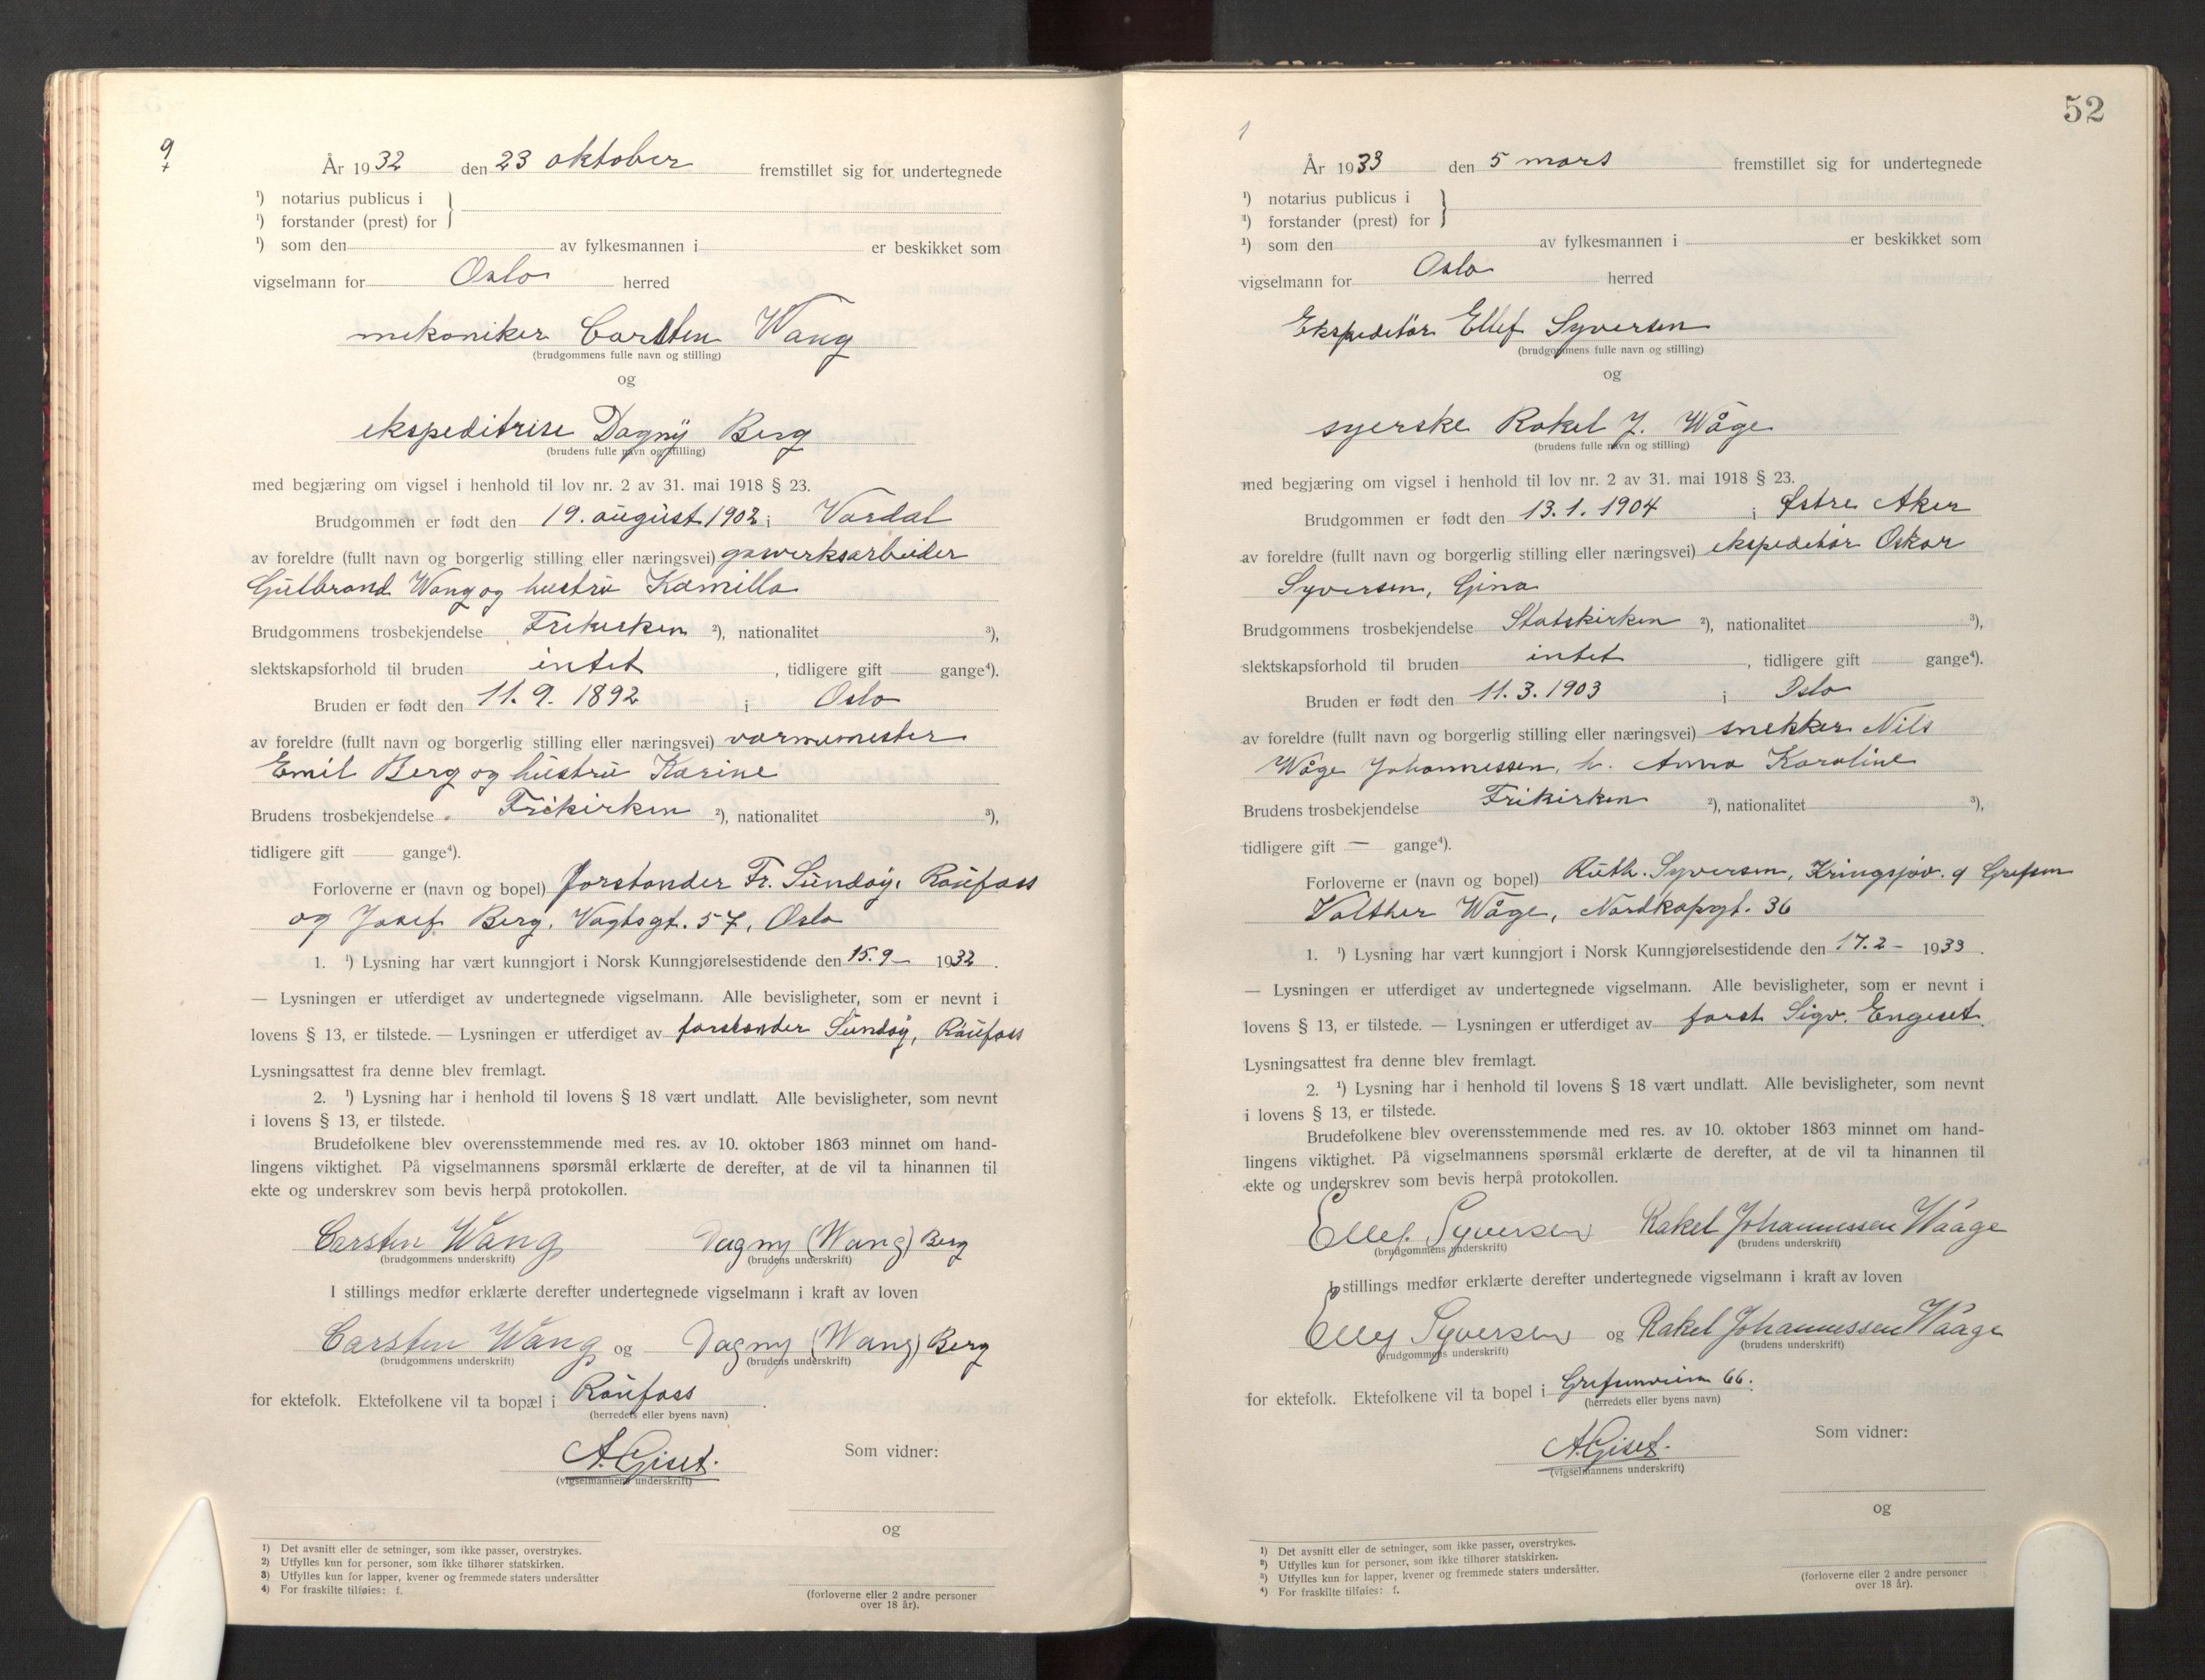 9
År 1932 den 23 oktober fremstillet sig for undertegnede
¹) notarius publicus i
¹) forstander (prest) for
¹) som den av fylkesmannen i er beskikket som
vigselmann for Oslo herred
mekaniker Carsten Wang
(brudgommens fulle navn og stilling)
og
ekspeditrise Dagny Berg
(brudens fulle navn og stilling)
med begjæring om vigsel i henhold til lov nr. 2 av 31. mai 1918 § 23.
Brudgommen er født den 19. august 1902 i Vardal
av foreldre (fullt navn og borgerlig stilling eller næringsvei) gaswerksarbeider
Gulbrand Wang og hustru Kamilla
Brudgommens trosbekjendelse Frikirken ²), nationalitet ³),
slektskapsforhold til bruden intet, tidligere gift gange⁴).
Bruden er født den 11. 9. 1892 i Oslo
av foreldre (fullt navn og borgerlig stilling eller næringsvei) varmemester
Emil Berg og hustru Karine
Brudens trosbekjendelse Frikirken ²), nationalitet ³),
tidligere gift gange⁴).
Forloverne er (navn og bopel) Forstander Fr. Sundøy, Raufoss
og Josef Berg, Vogtsgt. 57, Oslo
1. ¹) Lysning har vært kunngjort i Norsk Kunngjørelsestidende den 15. 9 – 1932.
— Lysningen er utferdiget av undertegnede vigselmann. Alle bevisligheter, som er nevnt i
lovens § 13, er tilstede. — Lysningen er utferdiget av forstander Sundøy, Raufoss
Lysningsattest fra denne blev fremlagt.
2. ¹) Lysning har i henhold til lovens § 18 vært undlatt. Alle bevisligheter, som nevnt
i lovens § 13, er tilstede.
Brudefolkene blev overensstemmende med res. av 10. oktober 1863 minnet om hand-
lingens viktighet. På vigselmannens spørsmål erklærte de derefter, at de vil ta hinannen til
ekte og underskrev som bevis herpå protokollen.
Carsten Wang Dagny (Wang) Berg
(brudgommens underskrift) (brudens underskrift)
I stillings medfør erklærte derefter undertegnede vigselmann i kraft av loven
Carsten Wang og Dagny (Wang) Berg
(brudgommens underskrift) (brudens underskrift)
for ektefolk. Ektefolkene vil ta bopæl i Raufoss.
(herredets eller byens navn)
A. Giset.
(vigselmannens underskrift)
Som vidner:
og
¹) Det avsnitt eller de setninger, som ikke passer, overstrykes.
²) Utfylles kun for personer, som ikke tilhører statskirken.
³) Utfylles kun for lapper, kvener og fremmede staters undersåtter
⁴) For fraskilte tilføies: f.
(forloverne eller 2 andre personer
over 18 år).
52
1
År 1933 den 5 mars fremstillet sig for undertegnede
¹) notarius publicus i
¹) forstander (prest) for
¹) som den av fylkesmannen i er beskikket som
vigselmann for Oslo herred
Ekspeditør Ellef Syversen
(brudgommens fulle navn og stilling)
og
syerske Rakel J. Wåge
(brudens fulle navn og stilling)
med begjæring om vigsel i henhold til lov nr. 2 av 31. mai 1918 § 23.
Brudgommen er født den 13. 1. 1904 i Østre Aker
av foreldre (fullt navn og borgerlig stilling eller næringsvei) ekspeditør Oskar
Syversen, Gina
Brudgommens trosbekjendelse Statskirken ²), nationalitet ³),
slektskapsforhold til bruden intet, tidligere gift gange⁴).
Bruden er født den 11. 3. 1903 i Oslo
av foreldre (fullt navn og borgerlig stilling eller næringsvei) snekker Nils
Wåge Johannessen, h. Anna Karoline
Brudens trosbekjendelse Frikirken ²), nationalitet ³),
tidligere gift — gange⁴).
Forloverne er (navn og bopel) Ruth. Syversen, Kringsjøv. 9 Grefsen
Valther Wåge, Nordkapgt. 36
1. ¹) Lysning har vært kunngjort i Norsk Kunngjørelsestidende den 17. 2 – 1933.
— Lysningen er utferdiget av undertegnede vigselmann. Alle bevisligheter, som er nevnt i
lovens § 13, er tilstede. — Lysningen er utferdiget av forst. Sigv. Engeset.
Lysningsattest fra denne blev fremlagt.
2. ¹) Lysning har i henhold til lovens § 18 vært undlatt. Alle bevisligheter, som nevnt
i lovens § 13, er tilstede.
Brudefolkene blev overensstemmende med res. av 10. oktober 1863 minnet om hand-
lingens viktighet. På vigselmannens spørsmål erklærte de derefter, at de vil ta hinannen til
ekte og underskrev som bevis herpå protokollen.
Ellef Syversen Rakel Johannessen Waage
(brudgommens underskrift) (brudens underskrift)
I stillings medfør erklærte derefter undertegnede vigselmann i kraft av loven
Ellef Syversen og Rakel Johannessen Waage
(brudgommens underskrift) (brudens underskrift)
for ektefolk. Ektefolkene vil ta bopel i Grefsenveien 66.
(herredets eller byens navn)
A. Giset.
(vigselmannens underskrift)
Som vidner:
og
¹) Det avsnitt eller de setninger, som ikke passer, overstrykes.
²) Utfylles kun for personer, som ikke tilhører statskirken.
³) Utfylles kun for lapper, kvener og fremmede staters undersåtter.
⁴) For fraskilte tilføies: f.
(forloverne eller 2 andre personer
over 18 år).